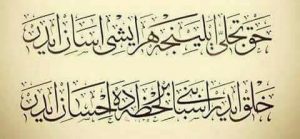 حق تجلى ايلينجه هر ايشى آسان ايدر
خلق ايدر اسبابنى بر لحظه ده احسان ايدر